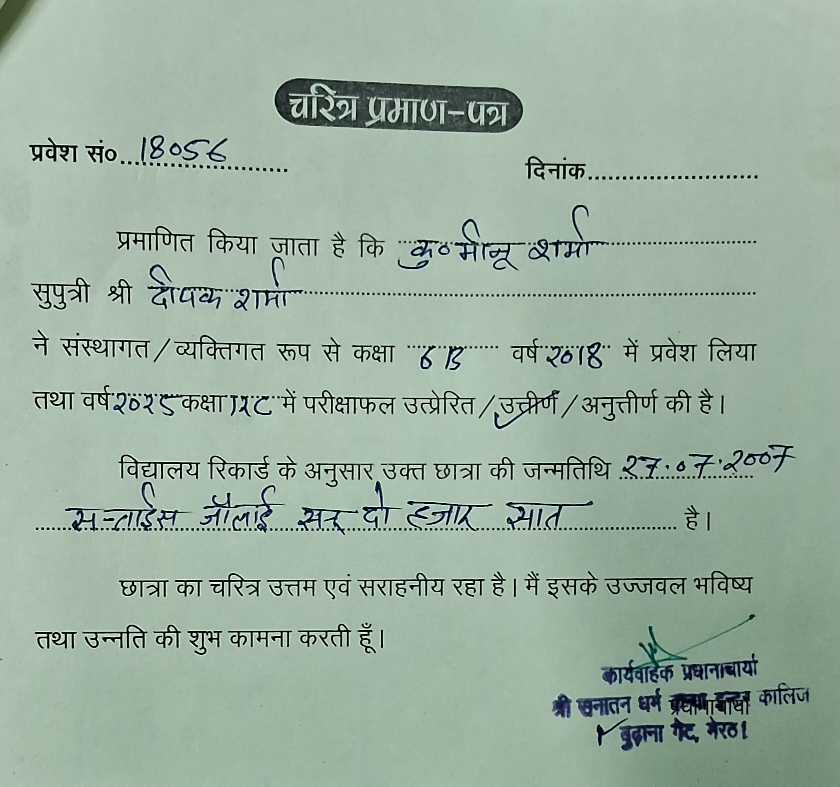 चरित्र प्रमाण-पत्र
प्रवेश सं० 18056
दिनांक
प्रमाणित किया जाता है कि कु० मीनू शर्मा
सुपुत्री श्री दीपक शर्मा
ने संस्थागत / व्यक्तिगत रूप से कक्षा 6 B वर्ष 2018 में प्रवेश लिया
तथा वर्ष 2025 कक्षा 12C में परीक्षाफल उत्प्रेरित / उत्तीर्ण / अनुत्तीर्ण की है।
विद्यालय रिकार्ड के अनुसार उक्त छात्रा की जन्मतिथि 27.07.2007
सत्ताईस जौलाई सन् दो हजार सात है।
छात्रा का चरित्र उत्तम एवं सराहनीय रहा है। मैं इसके उज्जवल भविष्य
तथा उन्नति की शुभ कामना करती हूँ।
कार्यवाहक प्रधानाचार्या
श्री सनातन धर्म कालिज
बुढ़ाना गेट, मेरठ।